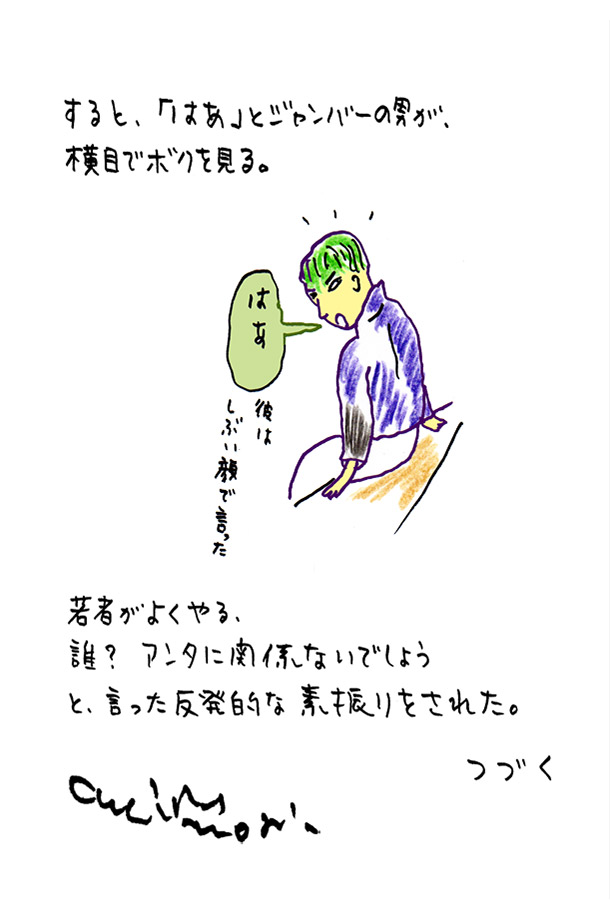 すると、「はあ」とジャンバーの男が、
横目でボクを見る。
はあ
彼は
しぶい顔で言った
若者がよくやる、
誰？ アンタに関係ないでしょう
と、言った反発的な素振りをされた。
つづく